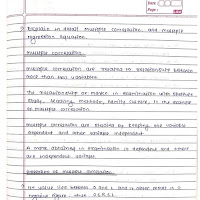 Date :
Page :
Explain in detail multiple correlation and multiple
regression equation.
Multiple correlation
Multiple correlation are related to relationship between
more than two variables.
The relationship of marks in examination with
study, teaching methods, family culture, is the example
of multiple correlation.
Multiple correlation are studied by keeping one variable
dependent and other variable independent.
A marks obtaining in examination is dependent and other
are independent variable.
Properties of multiple correlation
Its value lies between 0 and 1 and is never
negative figure. thus 0 ≤ R ≤ 1